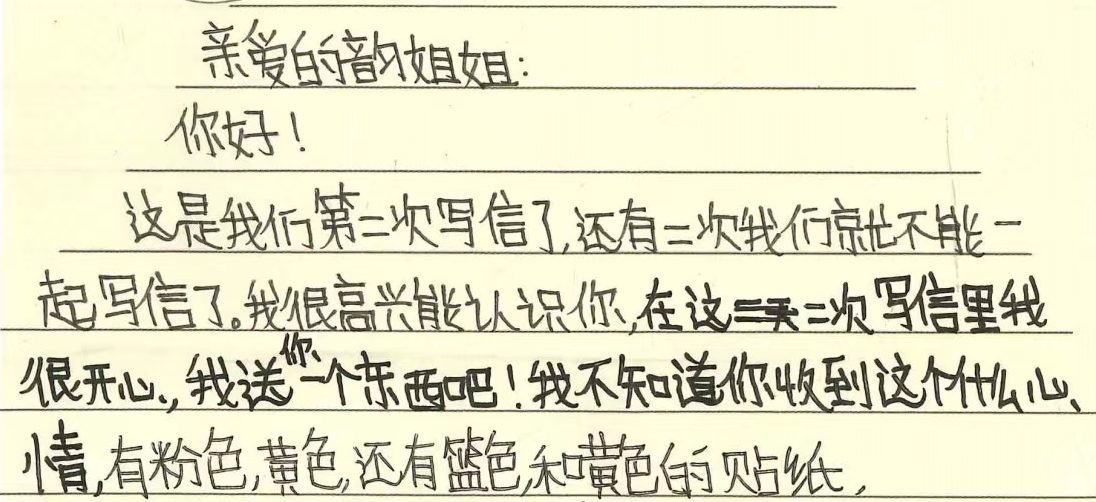 亲爱的韵姐姐:
你好!
这是我们第二次写信了,还有二次我们就不能一
起写信了。我很高兴能认识你,在这二次写信里我
很开心,我送你一个东西吧!我不知道你收到这个什么心
情,有粉色,黄色,还有篮色和黄色的贴纸,